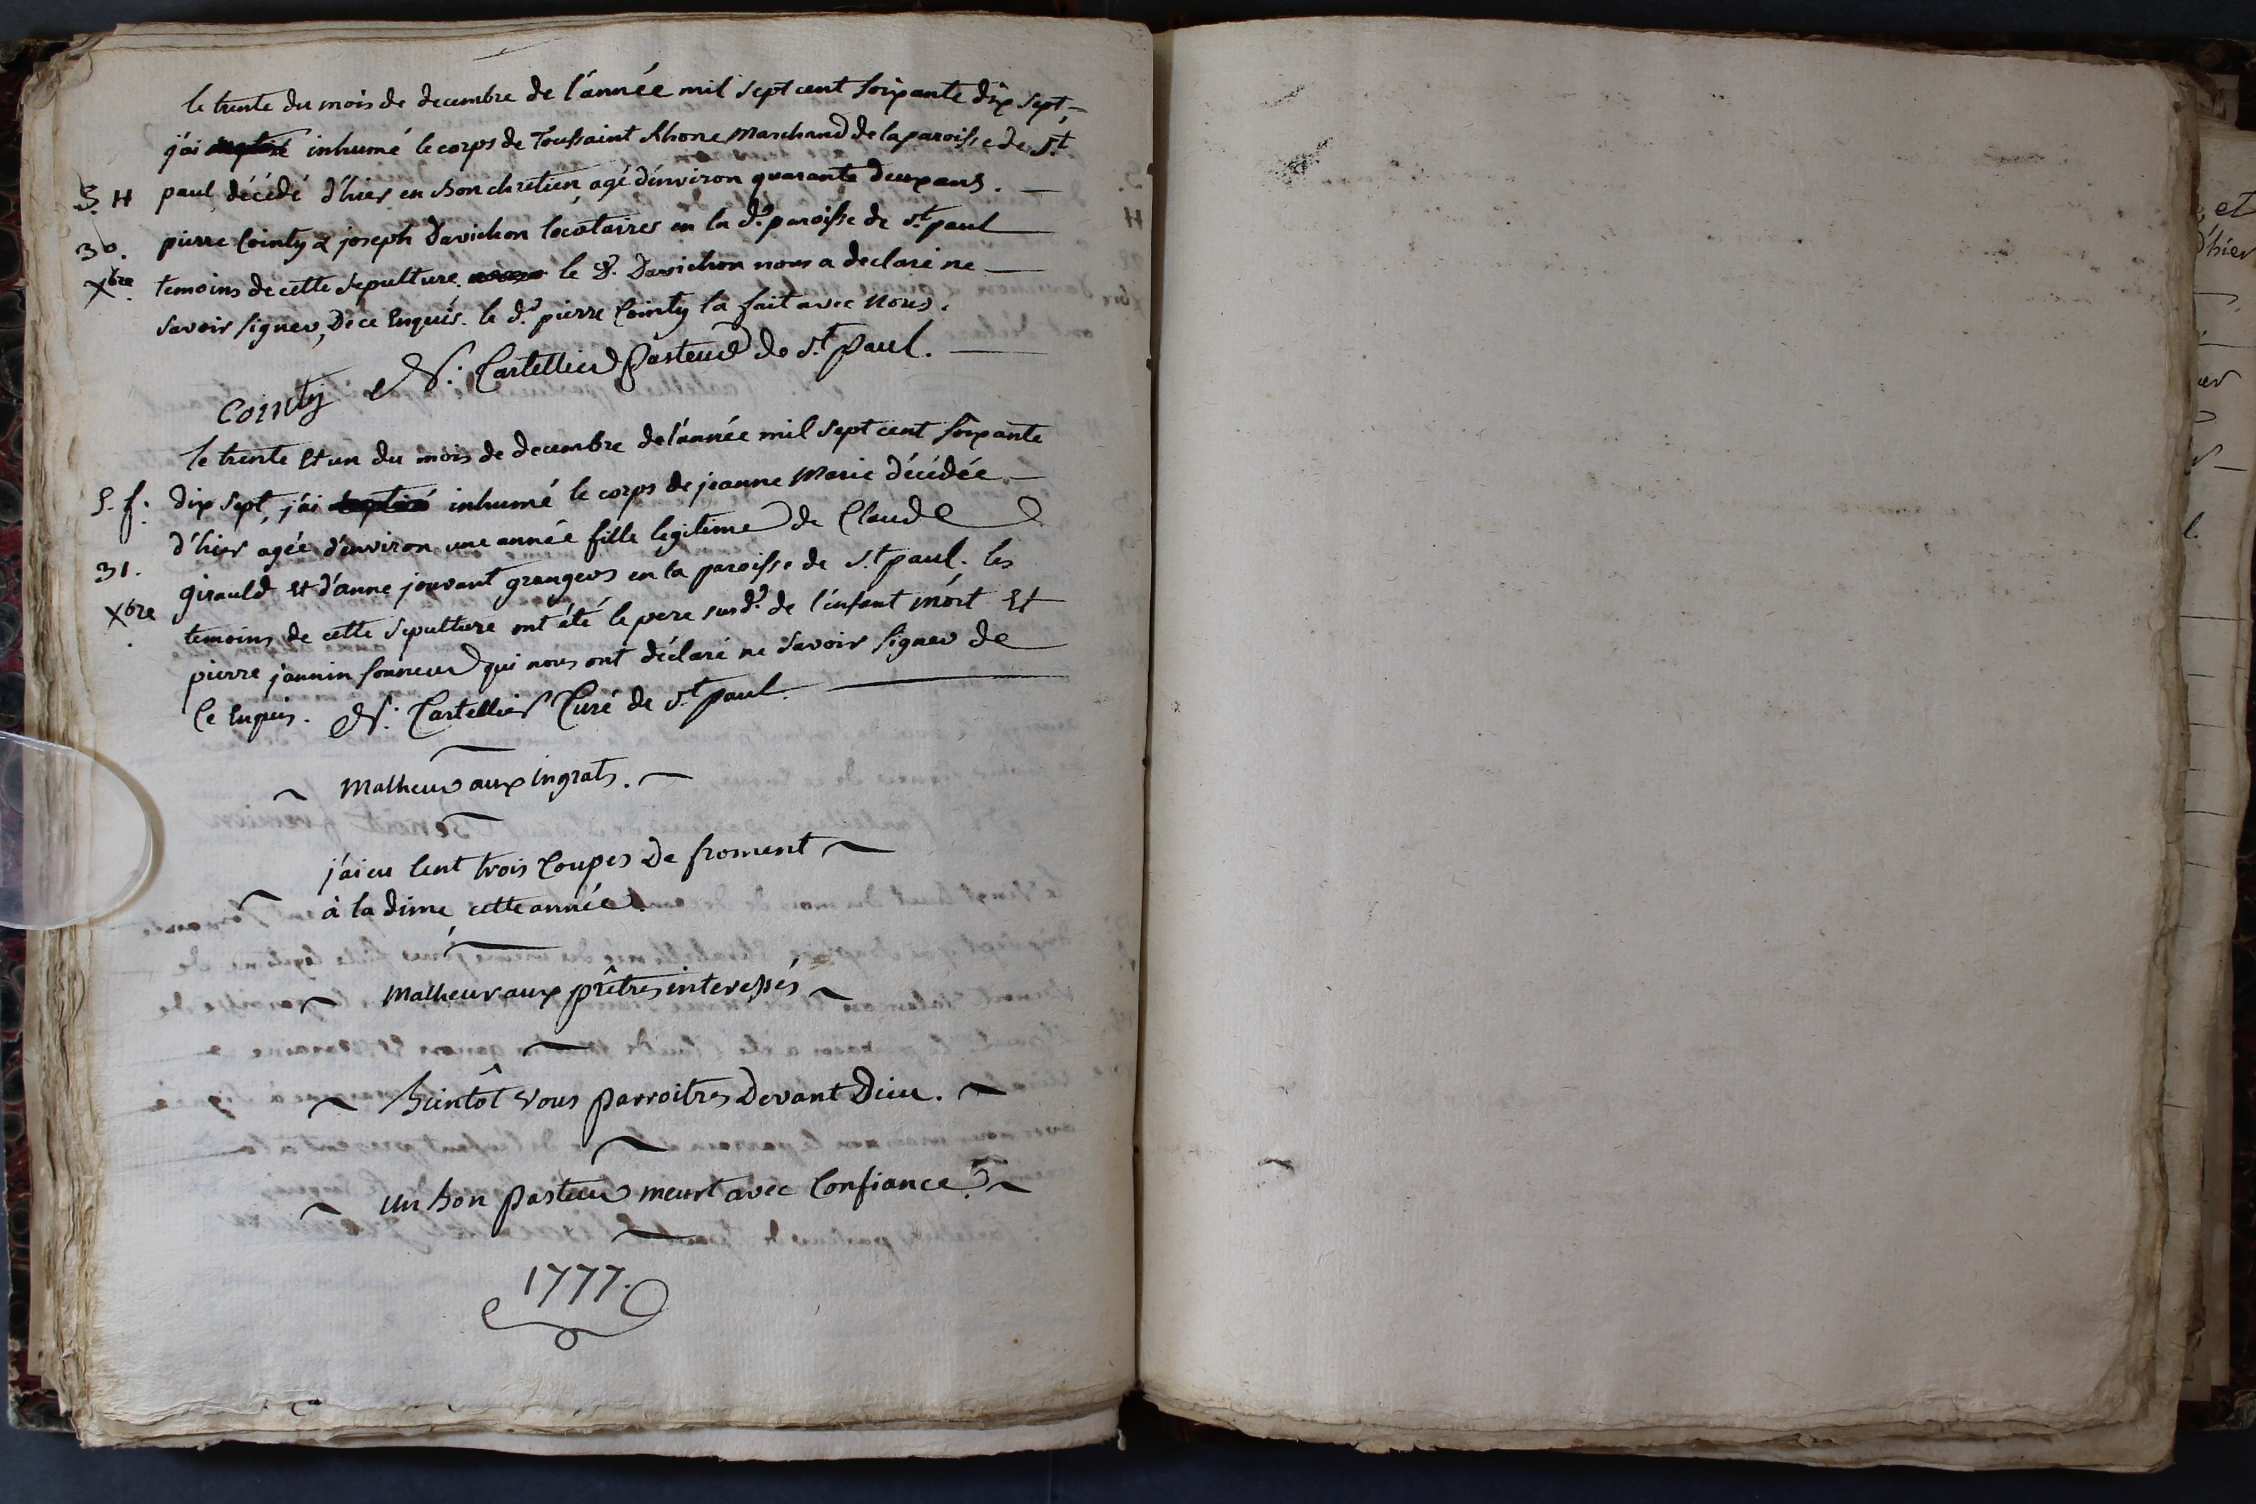 le trente du mois de decembre de l'année mil sept cent soixante dix sept,
j'ai baptisé inhumé le corps de Toussaint Rhone Marchand de la paroisse de St
S. H paul décédé d'hier en bon chretien, agé d'environ quarante deux ans.
30. pierre Cointy & joseph Davichon locataires en la de. paroisse de St. paul
Xbre temoins de cette sepulture. le d. Davichon nous a declaré ne
savoir signer, De ce Enquis. le d. pierre Cointy la fait avec Nous.
Cointy N. Cartellier Pasteur de St. Paul.
le trente Et un du mois de decembre de l'année mil sept cent soixante
S. f. dix sept, j'ai baptisé inhumé le corps de jeanne Marie décédée
d'hier agée d'environ une année fille legitime de Claude
31. girauld Et d'anne jouvant grangers en la paroisse de St. paul. les
Xbre temoins de cette sepulture ont été le pere susd. de l'enfant mort Et
pierre jannin sonneur qui nous ont déclaré ne savoir signer de
Ce Enquis. N. Cartellier Curé de St. paul.
Malheur aux Ingrats.
j'ai eu Cent trois Coupes de froment
à la dime cette année.
Malheur aux prêtres interessés
bientôt vous parroitres Devant Dieu.
un bon Pasteur meurt avec Confiance.
1777.
et
d'hier
er
l.